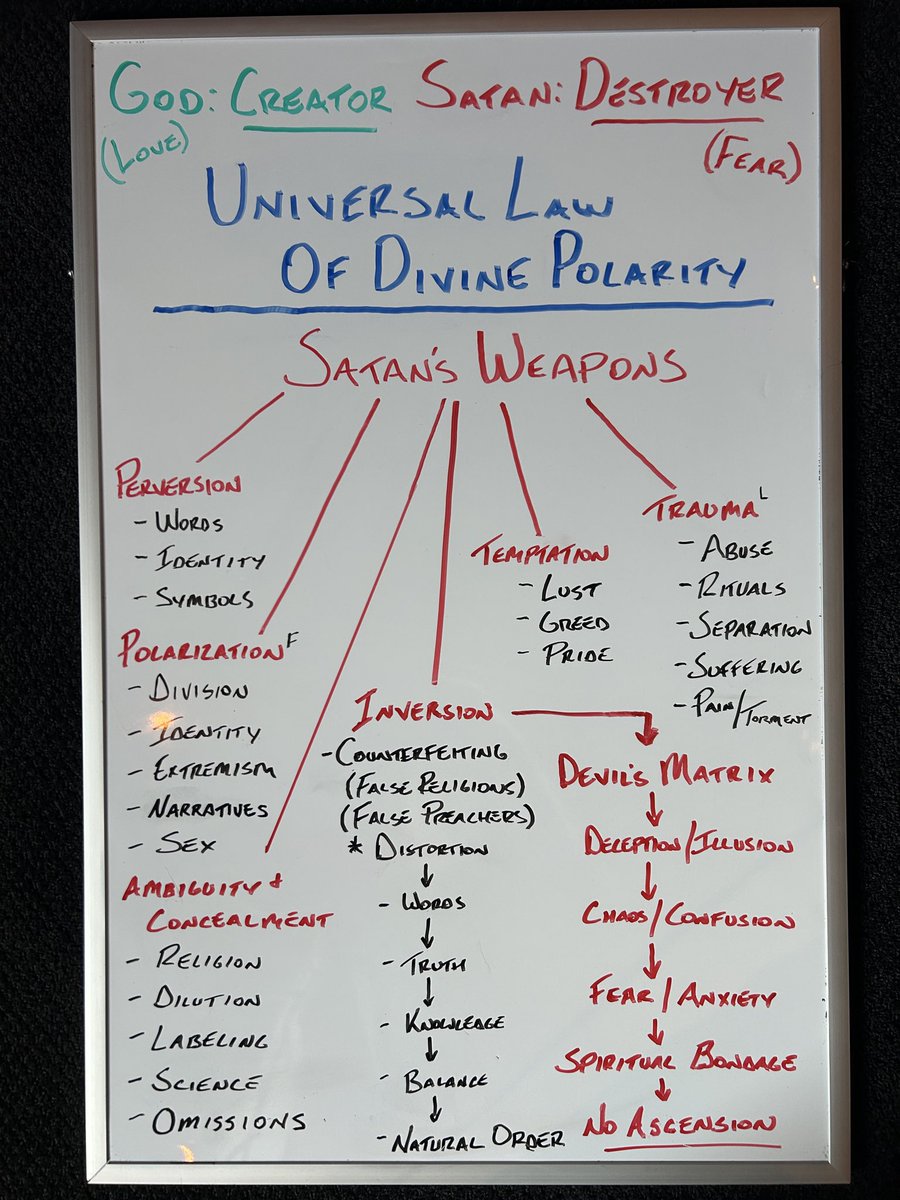 GOD: CREATOR SATAN: DESTROYER
(LOVE) (FEAR)
UNIVERSAL LAW
OF DIVINE POLARITY
SATAN'S WEAPONS
PERVERSION
- WORDS
- IDENTITY
- SYMBOLS
POLARIZATION F
- DIVISION
- IDENTITY
- EXTREMISM
- NARRATIVES
- SEX
AMBIGUITY &
CONCEALMENT
- RELIGION
- DILUTION
- LABELING
- SCIENCE
- OMISSIONS
INVERSION
- COUNTERFEITING
(FALSE RELIGIONS)
(FALSE PREACHERS)
* DISTORTION
↓
- WORDS
↓
- TRUTH
↓
- KNOWLEDGE
↓
- BALANCE
↓
- NATURAL ORDER
TEMPTATION
- LUST
- GREED
- PRIDE
TRAUMA L
- ABUSE
- RITUALS
- SEPARATION
- SUFFERING
- PAIN/TORMENT
DEVIL'S MATRIX
↓
DECEPTION/ILLUSION
↓
CHAOS/CONFUSION
↓
FEAR/ANXIETY
↓
SPIRITUAL BONDAGE
↓
NO ASCENSION